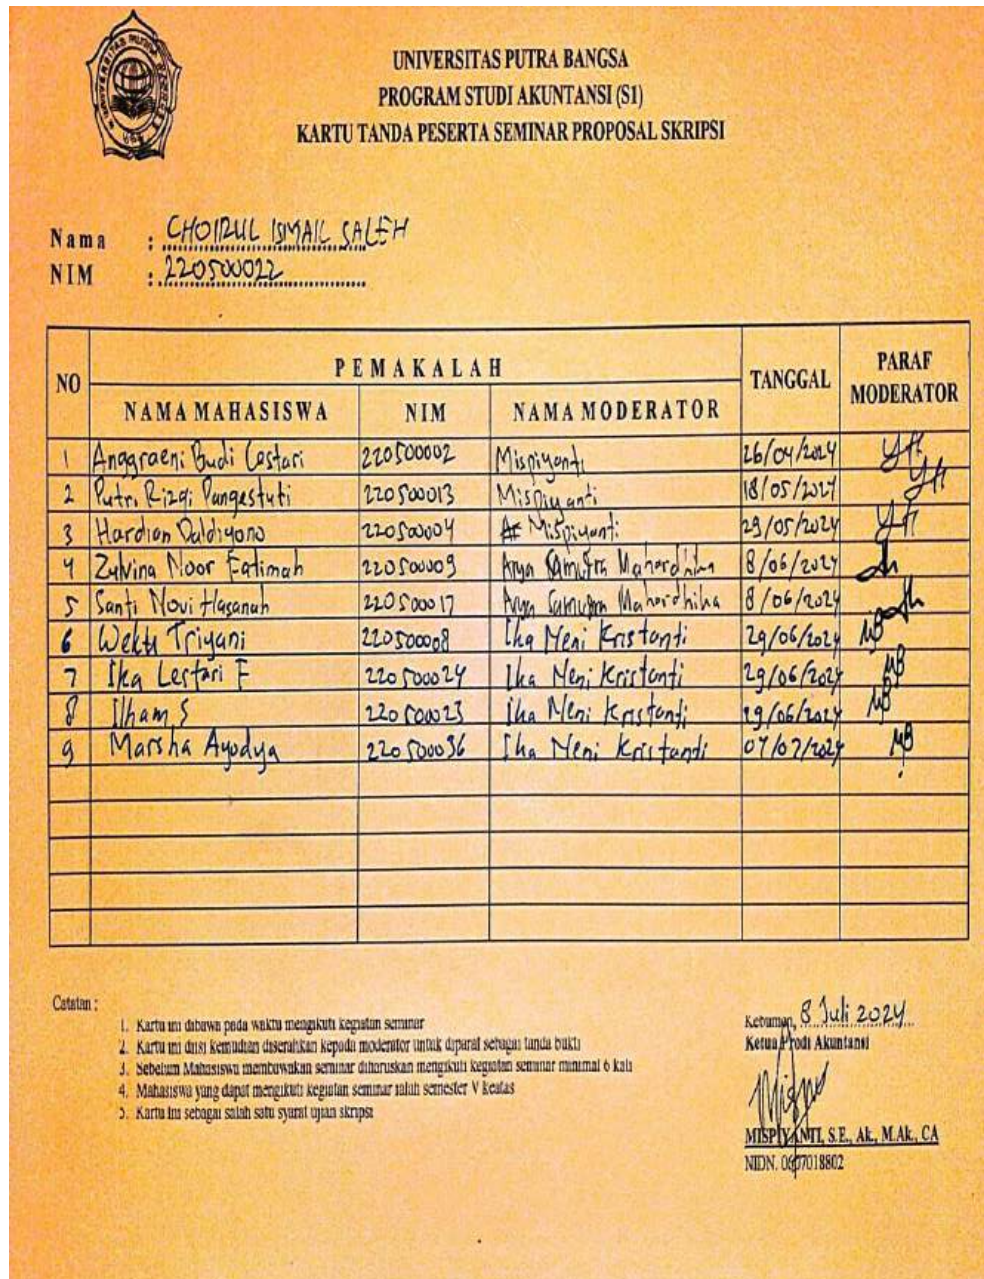 UNIVERSITAS PUTRA BANGSA
PROGRAM STUDI AKUNTANSI (S1)
KARTU TANDA PESERTA SEMINAR PROPOSAL SKRIPSI
Nama : CHOIRUL ISMAIL SALEH
NIM : 220500022
NO PEMAKALAH TANGGAL PARAF MODERATOR
NAMA MAHASISWA NIM NAMA MODERATOR
1 Anggraeni Budi Lestari 220500002 Mispiyanti 26/04/2024
2 Putri Rizqi Pangestuti 220500013 Mispiyanti 18/05/2024
3 Hardian Daldiyono 220500004 Mispiyanti 29/05/2024
4 Zulvina Noor Fatimah 220500009 Arya Samudra Mahardhika 8/06/2024
5 Santi Novi Hasanah 220500017 Arya Samudra Mahardhika 8/06/2024
6 Wekti Triyani 220500008 Ika Neni Kristanti 29/06/2024
7 Ika Lestari F 220500024 Ika Neni Kristanti 29/06/2024
8 Ilham S 220500023 Ika Neni Kristanti 29/06/2024
9 Marsha Ayodya 220500036 Ika Neni Kristanti 07/2024
Catatan :
1. Kartu ini dibawa pada waktu mengikuti kegiatan seminar
2. Kartu ini diisi kemudian diserahkan kepada moderator untuk diparaf sebagai tanda bukti
3. Sebelum Mahasiswa membawakan seminar diharuskan mengikuti kegiatan seminar minimal 6 kali
4. Mahasiswa yang dapat mengikuti kegiatan seminar ialah semester V keatas
5. Kartu ini sebagai salah satu syarat ujian skripsi
Kebumen, 8 Juli 2024
Ketua Prodi Akuntansi
MISPIYANTI, S.E., Ak., M.Ak., CA
NIDN. 0607018802